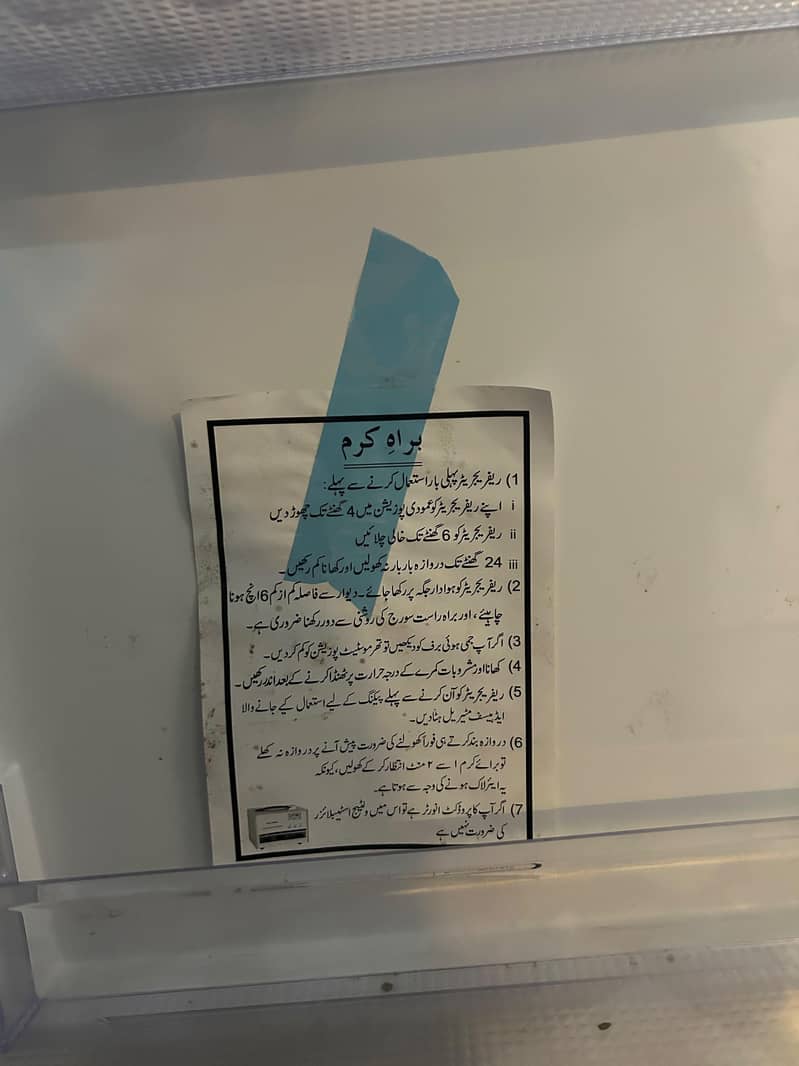 براہِ کرم
1) ریفریجریٹر پہلی بار استعمال کرنے سے پہلے:
i اپنے ریفریجریٹر کو عمودی پوزیشن میں 4 گھنٹے تک چھوڑ دیں
ii ریفریجریٹر کو 6 گھنٹے تک خالی چلائیں
iii 24 گھنٹے تک دروازہ بار بار نہ کھولیں اور کھانا کم رکھیں۔
2) ریفریجریٹر کو ہوادار جگہ پر رکھا جائے۔ دیوار سے فاصلہ کم از کم 6 انچ ہونا
چاہیئے، اور براہ راست سورج کی روشنی سے دور رکھنا ضروری ہے۔
3) اگر آپ جمی ہوئی برف کو دیکھیں تو تھرموسٹیٹ پوزیشن کو کم کردیں۔
4) کھانا اور مشروبات کمرے کے درجہ حرارت پر ٹھنڈا کرنے کے بعد اندر رکھیں۔
5) ریفریجریٹر کو آن کرنے سے پہلے پیکنگ کے لیے استعمال کیے جانے والا
ایڈہیسف مٹیریل ہٹا دیں۔
6) دروازہ بند کرتے ہی فوراً کھولنے کی ضرورت پیش آنے پر دروازہ نہ کھلے
تو برائے کرم ۱ سے ۲ منٹ انتظار کر کے کھولیں، کیونکہ
یہ ایئر لاک ہونے کی وجہ سے ہوتا ہے۔
7) اگر آپ کا پروڈکٹ انورٹر ہے تو اس میں ولٹیج اسٹیبیلائزر
کی ضرورت نہیں ہے